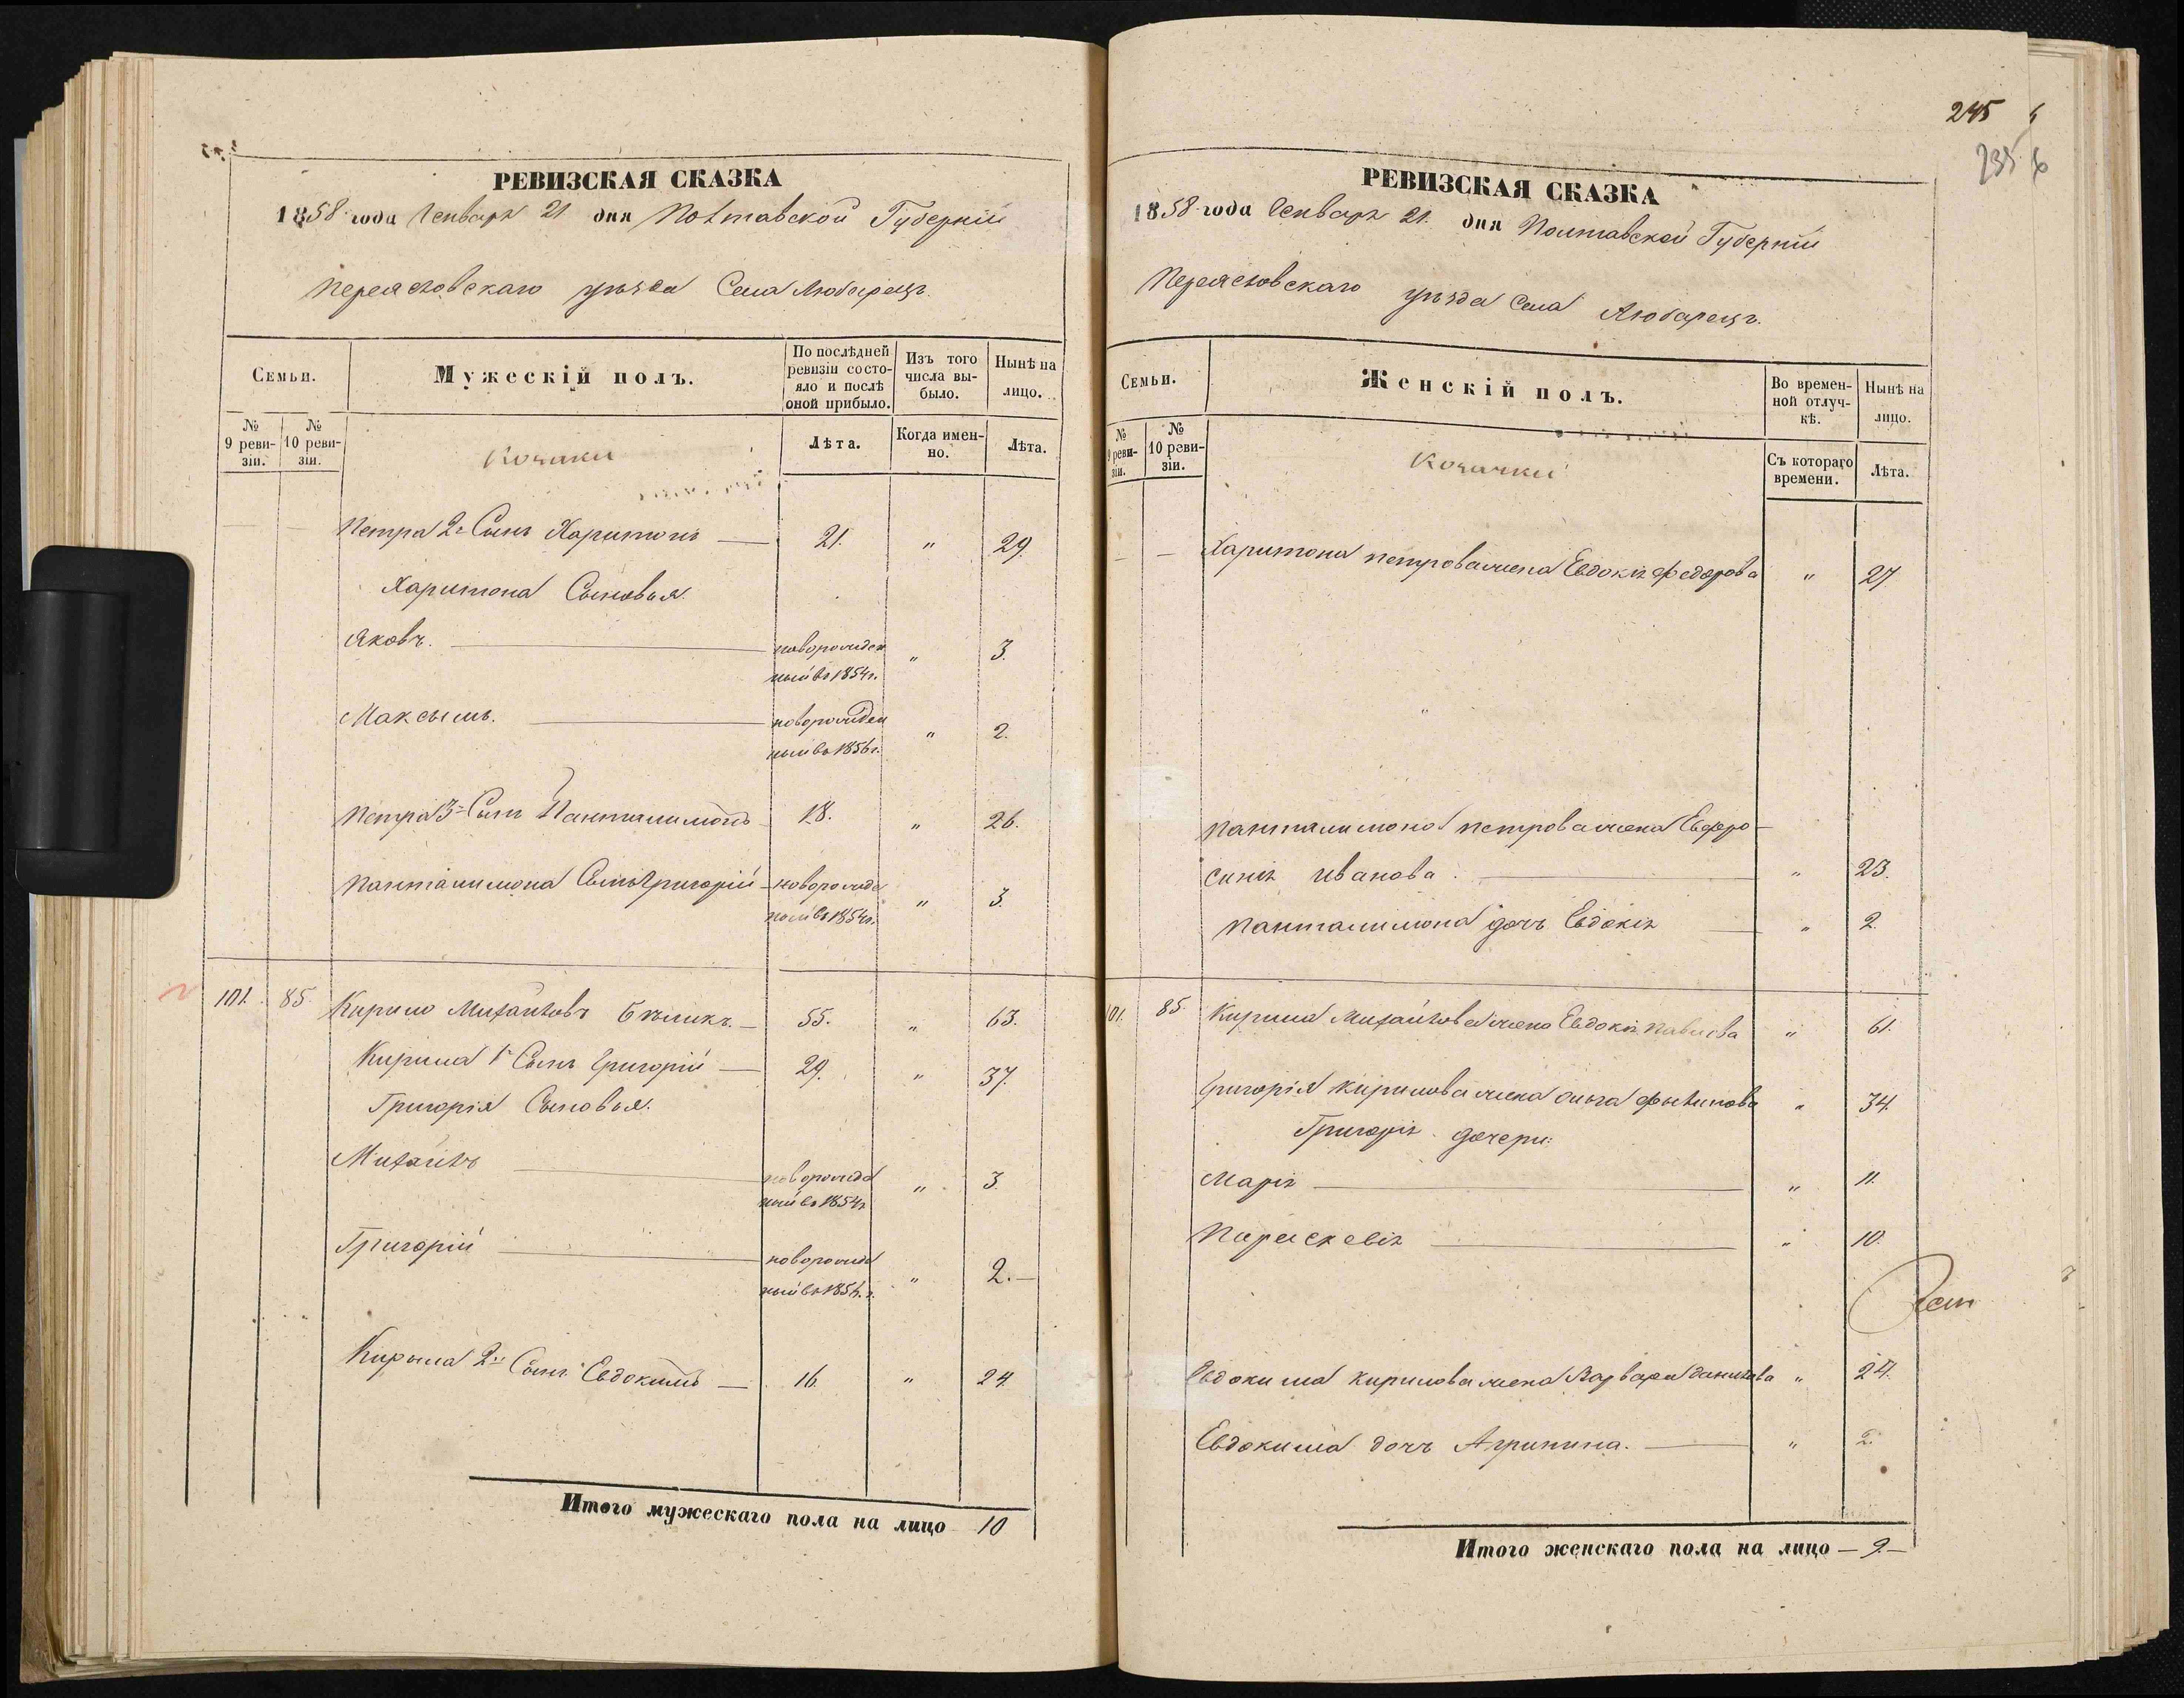 РЕВИЗСКАЯ СКАЗКА
1858 года Генваря 21 дня Полтавской Губерніи
Переяславскаго уѣзда Села Любарецъ.
Семьи.
Мужескій полъ.
По послѣдней ревизіи состояло и послѣ оной прибыло.
Изъ того числа выбыло.
Нынѣ на лицо.
№ 9 ревизіи.
№ 10 ревизіи.
Козаки
Лѣта.
Когда именно.
Лѣта.
Петра 2й Сынъ Харитонъ — 21. " 29.
Харитона Сыновья.
Яковъ. — новорожден " 3.
ный въ 1854 г.
Максымъ. — новорожден " 2.
ный въ 1856 г.
Петра 3й Сынъ Панталимонъ 18. " 26.
Панталимона Сынъ Григорій — новорожде " 3.
ный въ 1854 г.
101. 85. Кирило Михайловъ Бѣликъ. — 55. " 63.
Кирила 1й Сынъ Григорій — 29. " 37.
Григорія Сыновья.
Михайлъ — новорожд " 3
ный въ 1854 г
Григорій — новорожд " 2. —
ный въ 1856. г.
Кирыла 2й Сынъ Евдокимъ — 16. " 24.
Итого мужескаго пола на лицо 10
245
235
РЕВИЗСКАЯ СКАЗКА
1858 года Генваря 21. дня Полтавской Губерніи
Переяславскаго уѣзда Села Любарецъ.
Семьи.
Женскій полъ.
Во временной отлучкѣ.
Нынѣ на лицо.
№ 9 ревизіи.
№ 10 ревизіи.
Козачки
Съ котораго времени.
Лѣта.
— — Харитона Петрова жена Евдокія Федорова " 27.
Панталимона Петрова жена Евфро—
синія Иванова. — " 23.
Панталимона дочь Евдокія — " 2.
101. 85. Кирила Михайлова жена Евдокія Павлова " 61.
Григорія Кирилова жена Ольга Филипова " 34.
Григорія дочери:
Марія — " 11.
Параскевія — " 10.
Евдокима Кирилова жена Варвара Данилова " 24.
Евдокима дочь Агрипина. — " 2.
Итого женскаго пола на лицо — 9. —